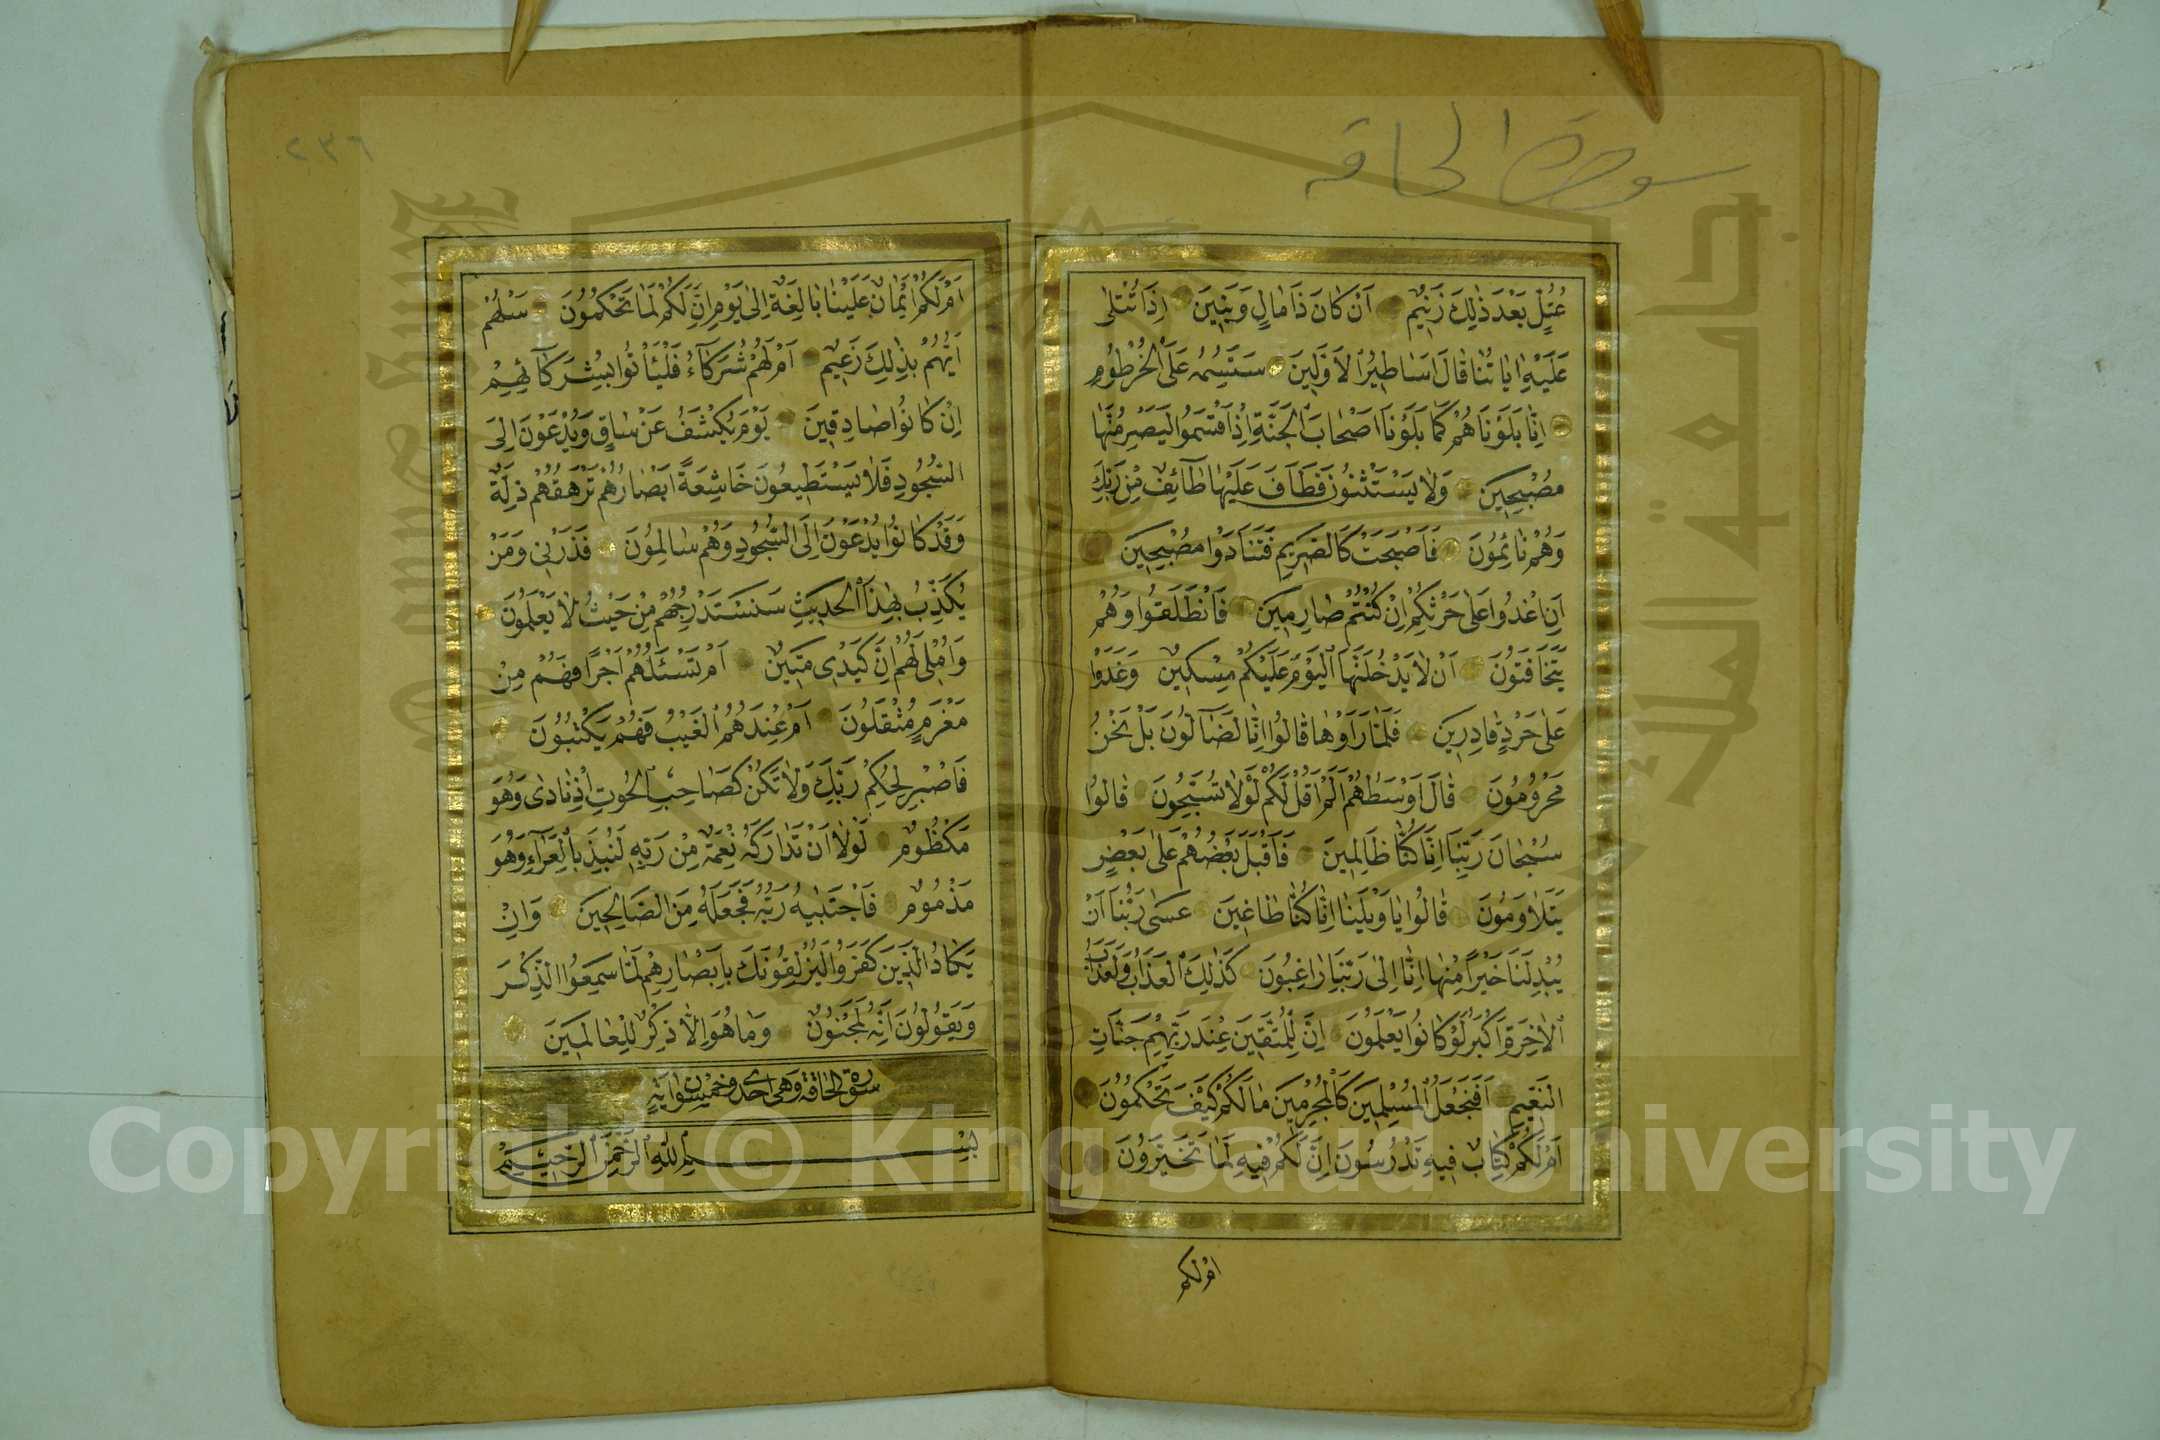 سورة الحاقه
عُتُلٍّ بَعْدَ ذٰلِكَ زَنِيمٍ اَنْ كَانَ ذَا مَالٍ وَبَنِينَ اِذَا تُتْلٰى
عَلَيْهِ اٰيَاتُنَا قَالَ اَسَاطِيرُ الْاَوَّلِينَ سَنَسِمُهُ عَلَى الْخُرْطُومِ
اِنَّا بَلَوْنَاهُمْ كَمَا بَلَوْنَا اَصْحَابَ الْجَنَّةِ اِذْ اَقْسَمُوا لَيَصْرِمُنَّهَا
مُصْبِحِينَ وَلَا يَسْتَثْنُونَ فَطَافَ عَلَيْهَا طَآئِفٌ مِنْ رَبِّكَ
وَهُمْ نَائِمُونَ فَاَصْبَحَتْ كَالصَّرِيمِ فَتَنَادَوْا مُصْبِحِينَ
اَنِ اغْدُوا عَلٰى حَرْثِكُمْ اِنْ كُنْتُمْ صَارِمِينَ فَانْطَلَقُوا وَهُمْ
يَتَخَافَتُونَ اَنْ لَا يَدْخُلَنَّهَا الْيَوْمَ عَلَيْكُمْ مِسْكِينٌ وَغَدَوْا
عَلٰى حَرْدٍ قَادِرِينَ فَلَمَّا رَاَوْهَا قَالُوا اِنَّا لَضَآلُّونَ بَلْ نَحْنُ
مَحْرُومُونَ قَالَ اَوْسَطُهُمْ اَلَمْ اَقُلْ لَكُمْ لَوْلَا تُسَبِّحُونَ قَالُوا
سُبْحَانَ رَبِّنَا اِنَّا كُنَّا ظَالِمِينَ فَاَقْبَلَ بَعْضُهُمْ عَلٰى بَعْضٍ
يَتَلَاوَمُونَ قَالُوا يَا وَيْلَنَا اِنَّا كُنَّا طَاغِينَ عَسٰى رَبُّنَا اَنْ
يُبْدِلَنَا خَيْرًا مِنْهَا اِنَّا اِلٰى رَبِّنَا رَاغِبُونَ كَذٰلِكَ الْعَذَابُ وَلَعَذَابُ
الْاٰخِرَةِ اَكْبَرُ لَوْ كَانُوا يَعْلَمُونَ اِنَّ لِلْمُتَّقِينَ عِنْدَ رَبِّهِمْ جَنَّاتِ
النَّعِيمِ اَفَنَجْعَلُ الْمُسْلِمِينَ كَالْمُجْرِمِينَ مَا لَكُمْ كَيْفَ تَحْكُمُونَ
اَمْ لَكُمْ كِتَابٌ فِيهِ تَدْرُسُونَ اِنَّ لَكُمْ فِيهِ لَمَا تَخَيَّرُونَ
ام لكم
٢٣٦
اَمْ لَكُمْ اَيْمَانٌ عَلَيْنَا بَالِغَةٌ اِلٰى يَوْمِ اِنَّ لَكُمْ لَمَا تَحْكُمُونَ سَلْهُمْ
اَيُّهُمْ بِذٰلِكَ زَعِيمٌ اَمْ لَهُمْ شُرَكَآءُ فَلْيَأْتُوا بِشُرَكَآئِهِمْ
اِنْ كَانُوا صَادِقِينَ يَوْمَ يُكْشَفُ عَنْ سَاقٍ وَيُدْعَوْنَ اِلَى
السُّجُودِ فَلَا يَسْتَطِيعُونَ خَاشِعَةً اَبْصَارُهُمْ تَرْهَقُهُمْ ذِلَّةٌ
وَقَدْ كَانُوا يُدْعَوْنَ اِلَى السُّجُودِ وَهُمْ سَالِمُونَ فَذَرْنِي وَمَنْ
يُكَذِّبُ بِهٰذَا الْحَدِيثِ سَنَسْتَدْرِجُهُمْ مِنْ حَيْثُ لَا يَعْلَمُونَ
وَاُمْلِي لَهُمْ اِنَّ كَيْدِي مَتِينٌ اَمْ تَسْئَلُهُمْ اَجْرًا فَهُمْ مِنْ
مَغْرَمٍ مُثْقَلُونَ اَمْ عِنْدَهُمُ الْغَيْبُ فَهُمْ يَكْتُبُونَ
فَاصْبِرْ لِحُكْمِ رَبِّكَ وَلَا تَكُنْ كَصَاحِبِ الْحُوتِ اِذْ نَادٰى وَهُوَ
مَكْظُومٌ لَوْلَا اَنْ تَدَارَكَهُ نِعْمَةٌ مِنْ رَبِّهِ لَنُبِذَ بِالْعَرَآءِ وَهُوَ
مَذْمُومٌ فَاجْتَبٰيهُ رَبُّهُ فَجَعَلَهُ مِنَ الصَّالِحِينَ وَاِنْ
يَكَادُ الَّذِينَ كَفَرُوا لَيُزْلِقُونَكَ بِاَبْصَارِهِمْ لَمَّا سَمِعُوا الذِّكْرَ
وَيَقُولُونَ اِنَّهُ لَمَجْنُونٌ وَمَا هُوَ اِلَّا ذِكْرٌ لِلْعَالَمِينَ
سورة الحاقة وهى احدى وخمسون اية
بِسْمِ اللّٰهِ الرَّحْمٰنِ الرَّحِيمِ
King Saud University
جامعة الملك سعود
Copyright © King Saud University